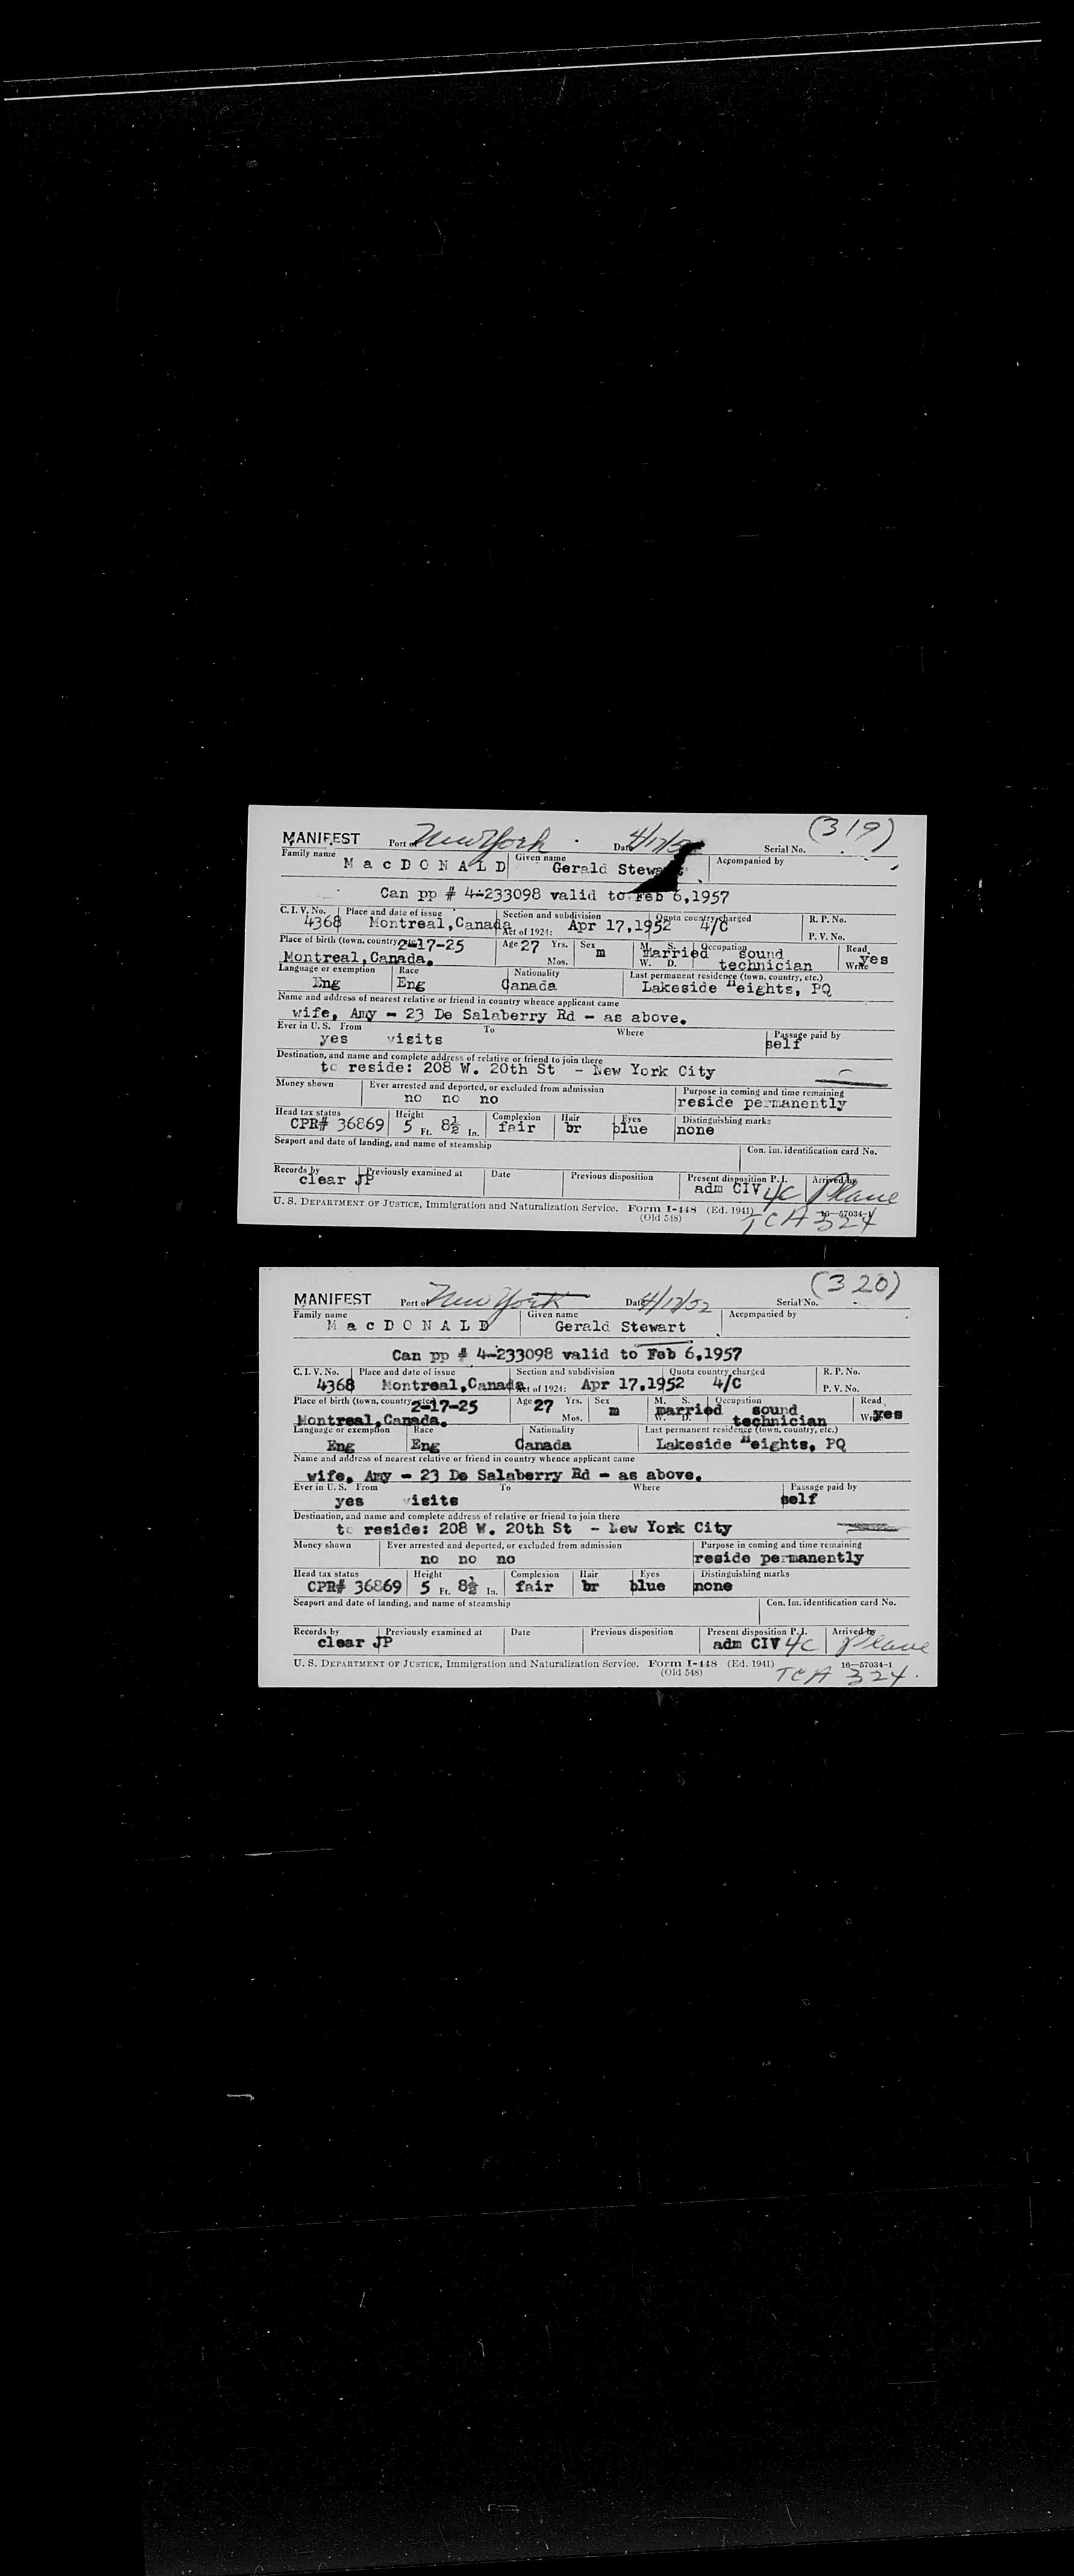 (319)
MANIFEST Port of New York Date 4/17/52 Serial No.
Family name Given name Accompanied by
MacDONALD Gerald Stewart
Can pp # 4-233098 valid to Feb 6,1957
C. I. V. No. Place and date of issue Section and subdivision Quota country charged R. P. No.
4368 Montreal,Canada Act of 1924: Apr 17,1952 4/C P. V. No.
Place of birth (town, country 2-17-25 Age 27 Yrs. Sex M. S. Occupation Read
Montreal,Canada. Mos. m married W. D. sound technician Write yes
Language or exemption Race Nationality Last permanent residence (town, country, etc.)
Eng Eng Canada Lakeside Heights, PQ
Name and address of nearest relative or friend in country whence applicant came
wife, Amy - 23 De Salaberry Rd - as above.
Ever in U. S. From To Where Passage paid by
yes visits self
Destination, and name and complete address of relative or friend to join there
to reside: 208 W. 20th St - New York City
Money shown Ever arrested and deported, or excluded from admission Purpose in coming and time remaining
no no no reside permanently
Head tax status Height Complexion Hair Eyes Distinguishing marks
CPR# 36869 5 Ft. 8½ In. fair br blue none
Seaport and date of landing, and name of steamship Con. Im. identification card No.
Records by Previously examined at Date Previous disposition Present disposition P. I. Arrived by
clear JP adm CIV 4C Plane
U. S. DEPARTMENT OF JUSTICE, Immigration and Naturalization Service. Form I-448 (Ed. 1941) 16—57034-1
(Old 548) TCA 324
(320)
MANIFEST Port of New York Date 4/17/52 Serial No.
Family name Given name Accompanied by
MacDONALD Gerald Stewart
Can pp # 4-233098 valid to Feb 6,1957
C. I. V. No. Place and date of issue Section and subdivision Quota country charged R. P. No.
4368 Montreal,Canada Act of 1924: Apr 17,1952 4/C P. V. No.
Place of birth (town, country, etc.) 2-17-25 Age 27 Yrs. Sex M. S. Occupation Read
Montreal,Canada. Mos. m married W. D. sound technician Write yes
Language or exemption Race Nationality Last permanent residence (town, country, etc.)
Eng Eng Canada Lakeside Heights, PQ
Name and address of nearest relative or friend in country whence applicant came
wife, Amy - 23 De Salaberry Rd - as above.
Ever in U. S. From To Where Passage paid by
yes visits self
Destination, and name and complete address of relative or friend to join there
to reside: 208 W. 20th St - New York City
Money shown Ever arrested and deported, or excluded from admission Purpose in coming and time remaining
no no no reside permanently
Head tax status Height Complexion Hair Eyes Distinguishing marks
CPR# 36869 5 Ft. 8½ In. fair br blue none
Seaport and date of landing, and name of steamship Con. Im. identification card No.
Records by Previously examined at Date Previous disposition Present disposition P. I. Arrived by
clear JP adm CIV 4C Plane
U. S. DEPARTMENT OF JUSTICE, Immigration and Naturalization Service. Form I-448 (Ed. 1941) 16—57034-1
(Old 548) TCA 324.